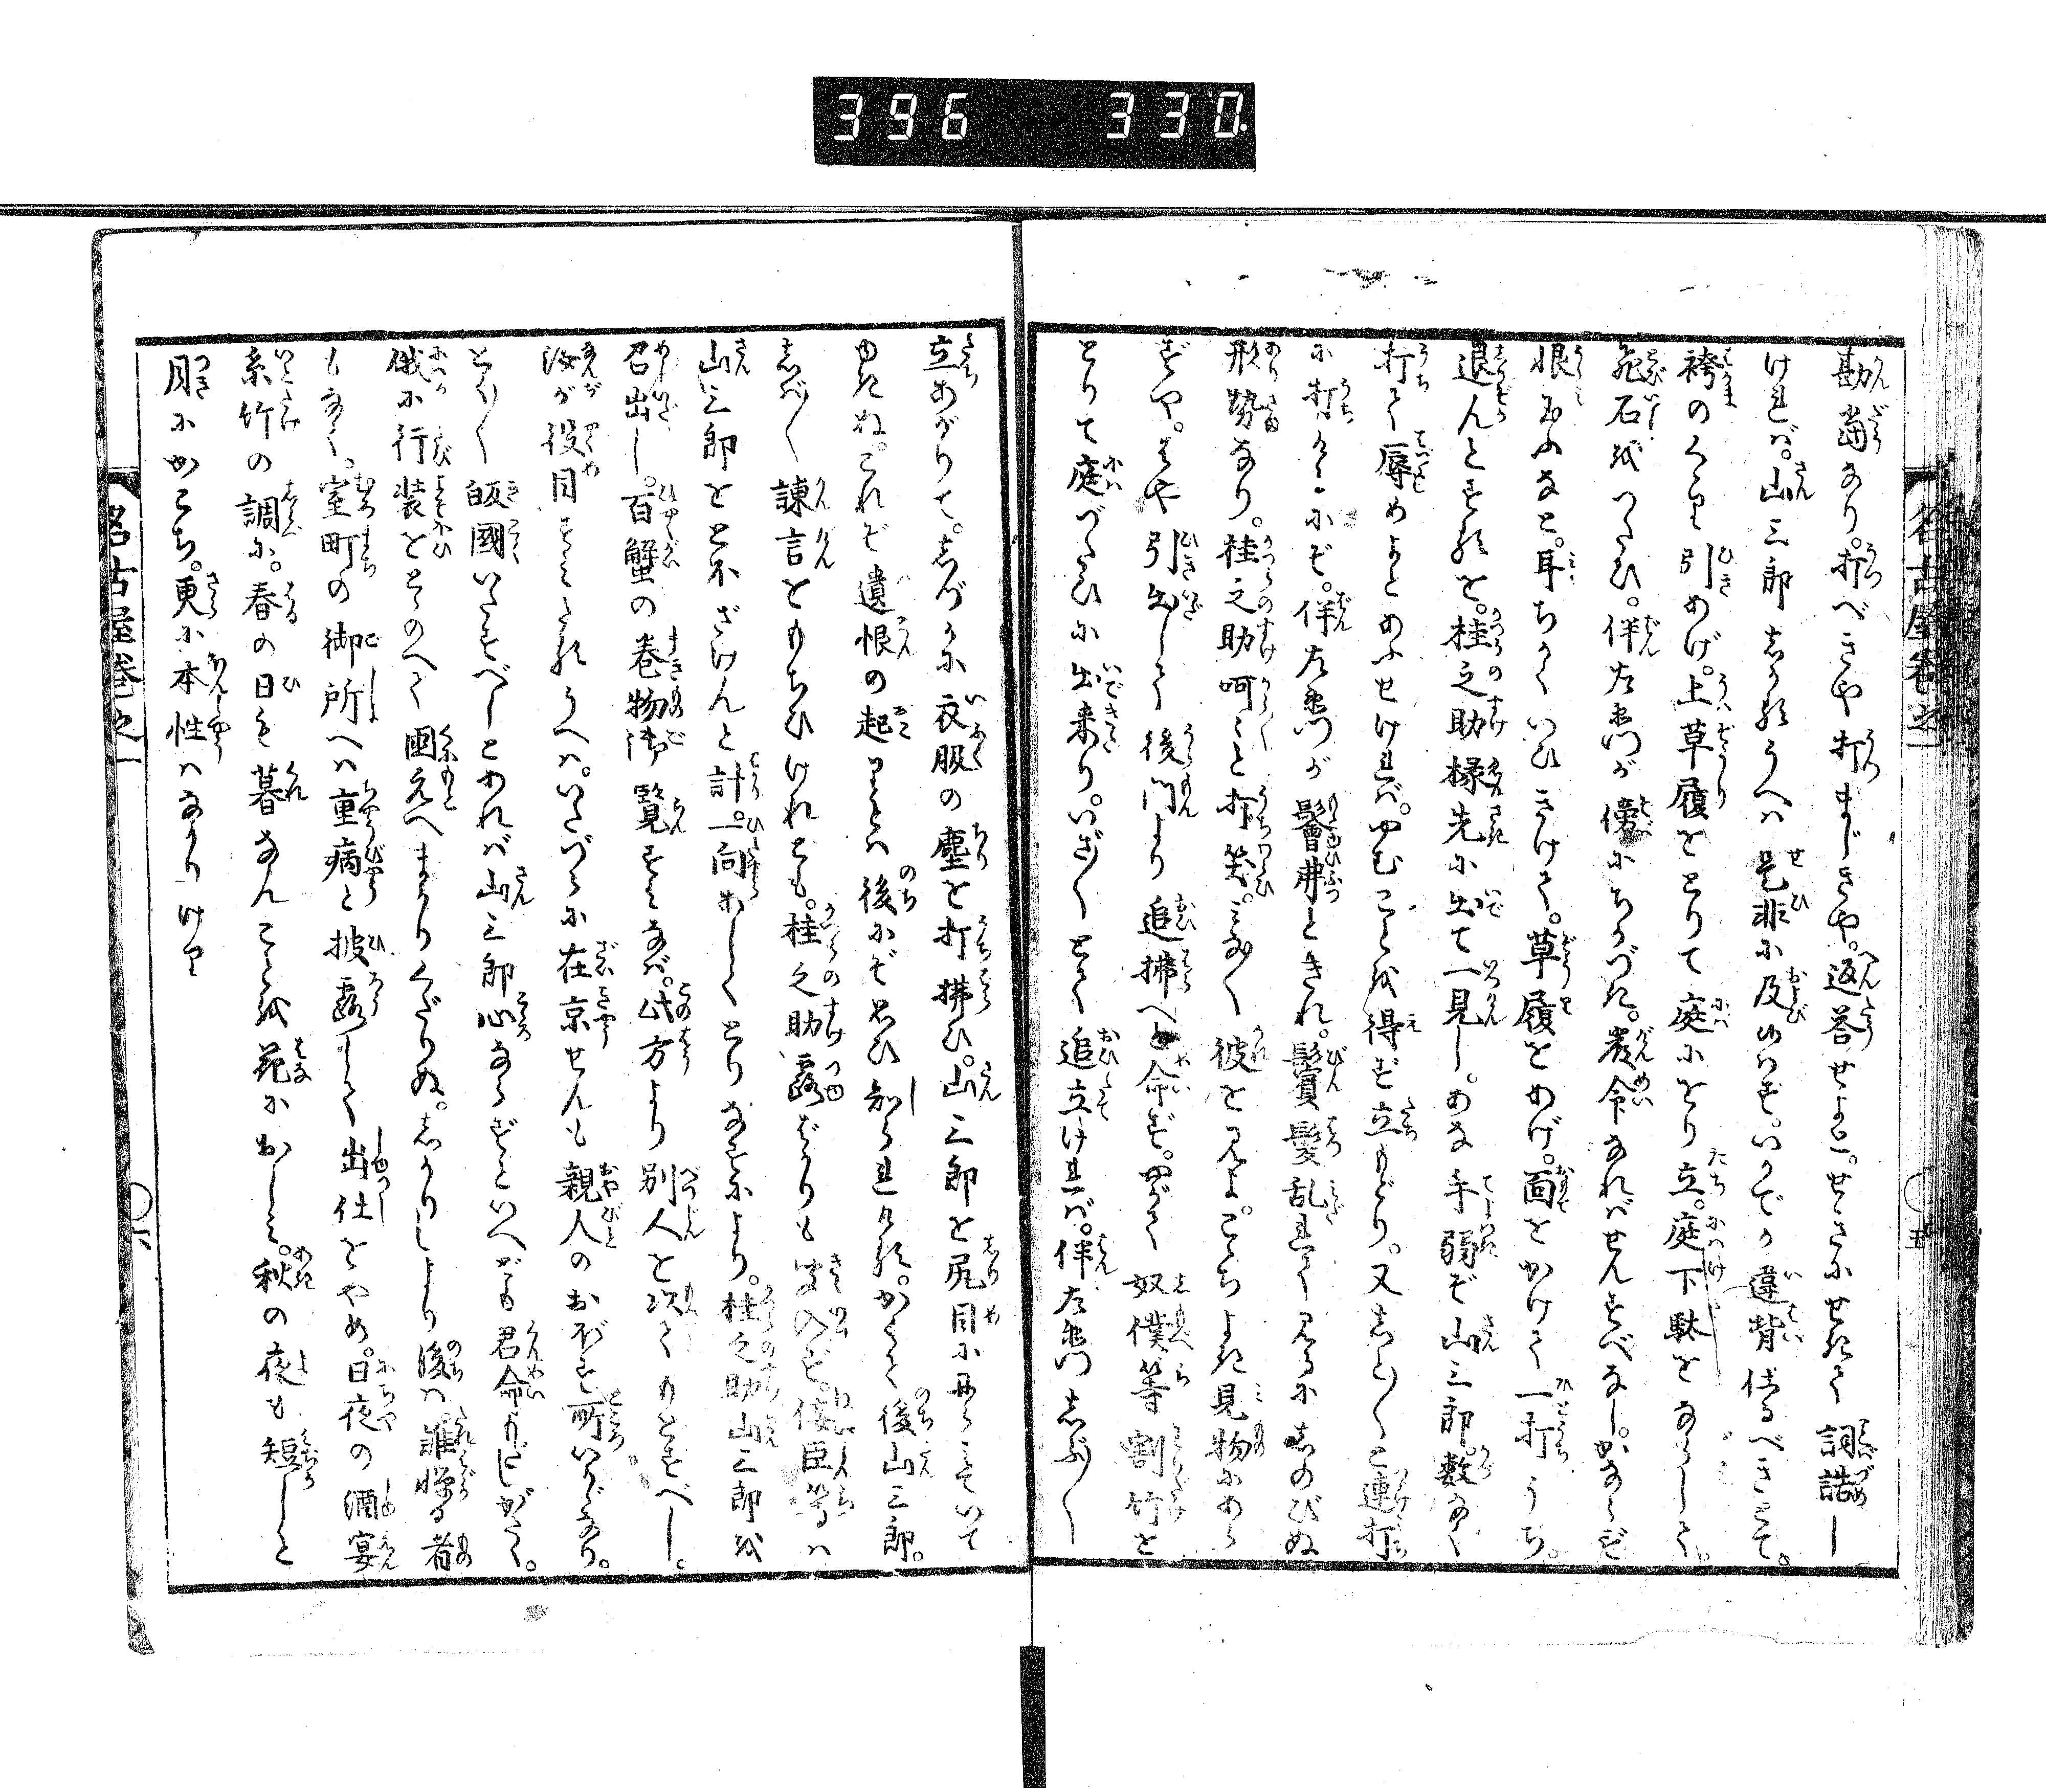 396 330
名古屋巻之一 五
勘當なり。打べきや打まじきや。返答せよと。せきにせきて詞詰し
ければ。山三郎しかるうへは是非に及び候はず。いかでか違背仕るべきとて。
袴のくゝり引あげ。上草履をとりて庭にをり立。庭下駄をならして。
飛石をつたひ。伴左衛門が傍にちかづき。厳命なればせんすべなし。かならず
恨玉ふなと。耳ちかくいひきけて。草履をあげ。面をかけて一打うち。
退んとするを。桂之助椽先に出て一見し。あな手弱ぞ山三郎。数多く
打て辱めよとあふせければ。やむことを得ず立もどり。又しと〱と連打
に打けるにぞ。伴左衛門が髻弗ときれ。鬢髪乱れて見るにしのびぬ
形勢なり。桂之助呵〻と打笑。みな〱彼を見よ。こゝちよき見物にあら
ずや。はや引出して後門より追拂へと命ず。やがて奴僕等割竹を
とりて庭づたひに出来り。いざ〱とて追立ければ。伴左衛門しぶ〱
立あがりて。しづかに衣服の塵を打拂ひ。山三郎を尻目に見やりていて
ゆきぬ。これぞ遺恨の起りとは後にぞ思ひ知られける。かくて後山三郎。
しば〱諫言をもちひけれども。桂之助露ばかりも聞入ず。佞臣等は
山三郎をとほざけんと計。一向あしくとりなすにより。桂之助山三郎を
召出し。百蟹の巻物御覧ずみなば。此方より別人を以てもどすべし。
汝が役目すみたるうへは。いたづらに在京せんも親人のおぼす所いかゞなり。
とく〱皈國いたすべしとあれば山三郎心ならずといへども君命もだしがたく。
俄に行装をとゝのへて国元へまかりくだりぬ。しかりしより後は誰憚る者
もなく。室町の御所へは重病と披露して出仕をやめ。日夜の酒宴
糸竹の調に。春の日も暮なんことを花におしみ。秋の夜も短しと
月にかこち。更に本性はなかりけり
名古屋巻之一 六